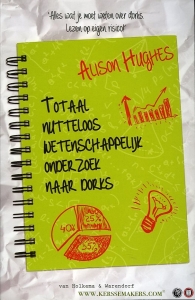 "Alles wat je moet weten over dorks.
Lezen op eigen risico!"
Alison Hughes
Totaal
nutteloos
wetenschappelijk
onderzoek
naar dorks
25%
40%
35%
van Holkema & Warendorf
WWW.KERSSEMAKERS.COM